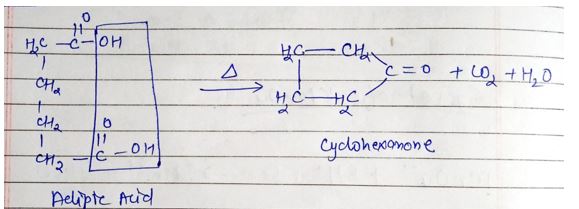 O
H₂C — C — OH
CH₂
CH₂
O
CH₂ — C — OH
Adipic Acid
Δ
H₂C — CH₂
C = O + CO₂ + H₂O
H₂C — H₂C
Cyclohexanone